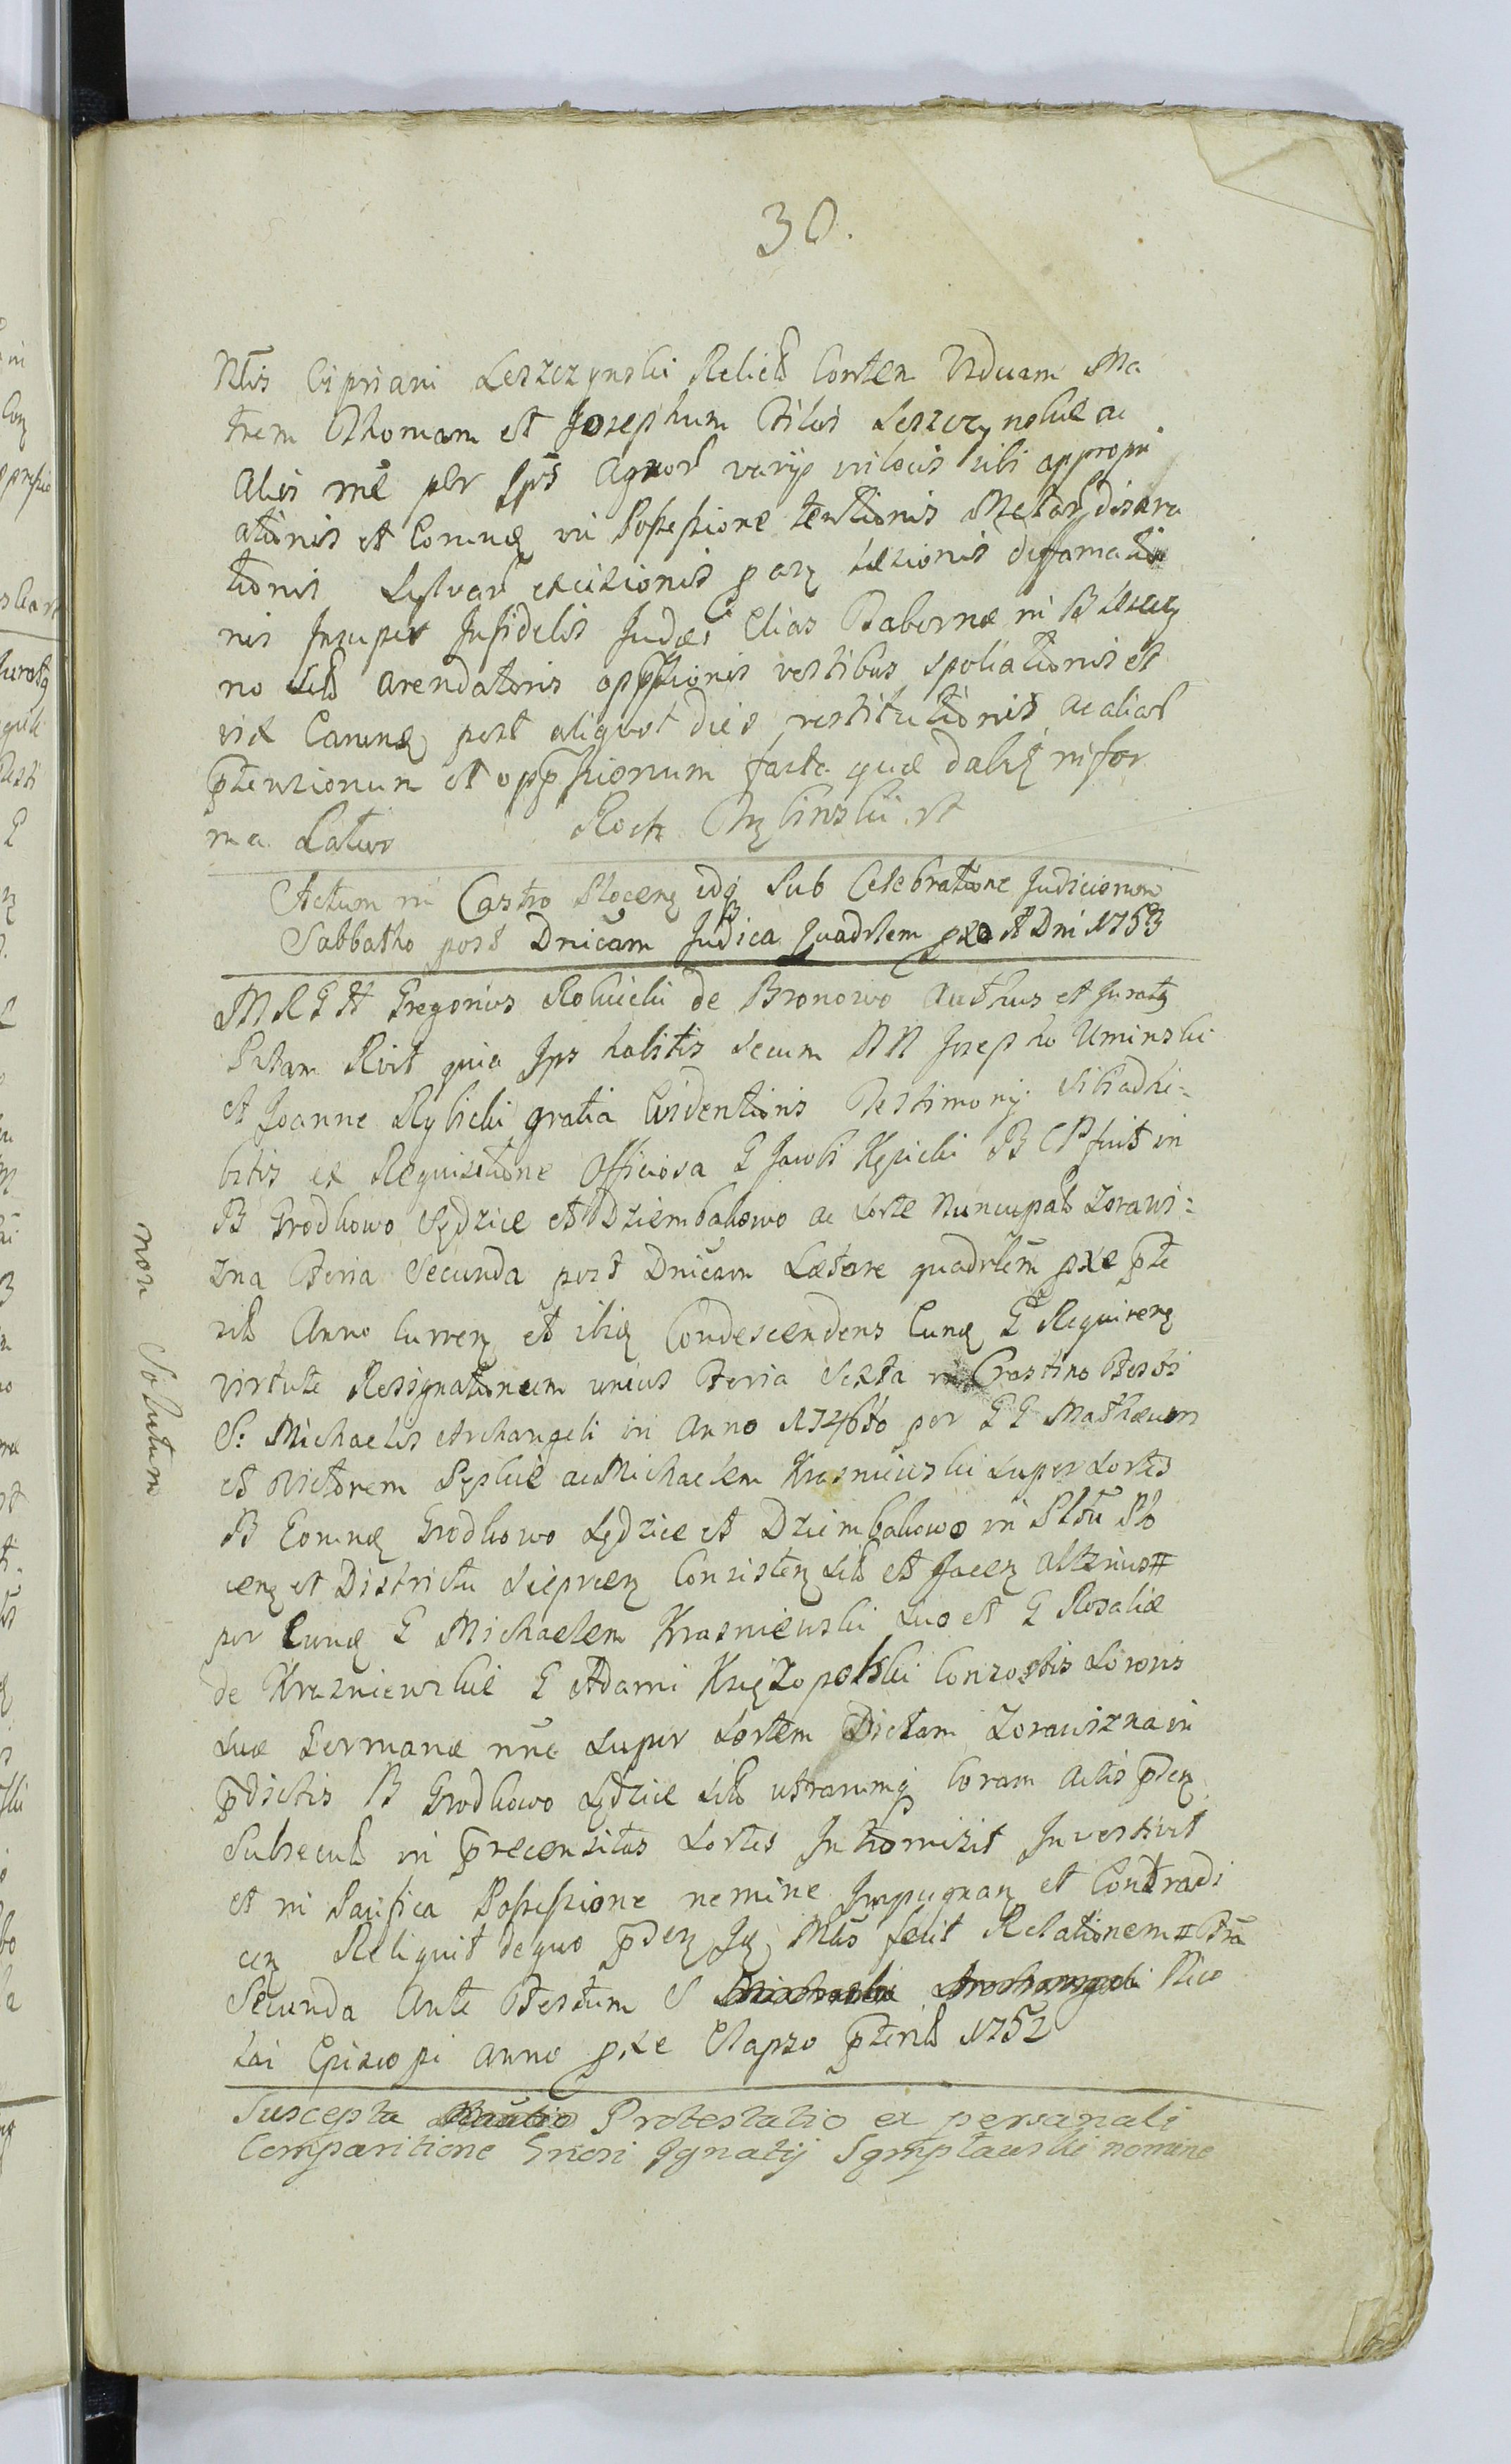 30.
Ntis Cipriani Leszczynski Relictā Conten Viduam Ma
trem Thomam et Josephum Filios Leszczynskie ac
Alios rne per Ipos Agror varijs in locis sibi appropri
ationis et Eorundę in Possessione tentionis Metarę disara
tionis Sylvar excisionis parę Læsionis diffamatio
nis Insuper Infidelis Judæi Elias Tabernæ in B
no arendatoris opptionis vestibus spoliationis et
vix Earundę post aliquot dies restitutionis ac aliar
p̄tensionum et opp̄ssionum facta quæ dabitę in for
ma Latius Roch Rybinski st
Actum in Castro Plocenę idq Sub Celebratione Judiciorum
Sabbatho post Dnicam Judica Quadrlem pxa A Dni 1753
M R G A Gregorius Rokicki de Bronowo Authus et Juratę
Pktam Rvit quia Ips habitis secum NN Josepho Uminski
et Joanne Rybicki gratia Evidentioris Testimonij Sibi adhi=
bitis ex Requisitione Officiosa G Jacobi Kępicki B C P fuit in
B Grodkowo Sędzice et Dziembakowo ac Sorte Nuncupatā Zorawi=
zna Feria Secunda post Dnicam Lætare quadrlem pxe p̄te
ritā Anno Currenę et ibię Condescendens Eundę G Requirenę
virtute Resignationum unius Feria Sexta in Crastino Festi
S: Michaelis Archangeli in Anno 1746to per GG Mathæum
et Victorem Sępskie ac Michaelem Krasniewski super Sortes
B Eorundę Grodkowo Sędzice et Dziembakowo in Pltu Plo
cenę et Districtu Sieprcenę Consistenę Sitā et Jacenę alterius #
per Eundę G Michaelem Krasniewski Suo et G Rosaliæ
de Krasniewskie G Adami Księżopolski Consortis Sororis
Suæ Germanæ nne super Sortem Dictam Zorawizna in
p̄dictis B Grodkowo Sędzice Sitā utrarumq Coram Actis p̄denę
Subsecutā in p̄recensitas Sortes Intromisit Investivit
et in Pacifica Possessione nemine Impugnanę et Contradi
cenę Reliquit de quo p̄denę Ię Mtis fecit Relationem # Fra
Secunda Ante Festum S Nico
lai Episcopi Anno pxe Elapso p̄teritā 1752
Suscepta Protestatio ex personali
Comparitione Gnosi Ignatij nomine
non Solutum